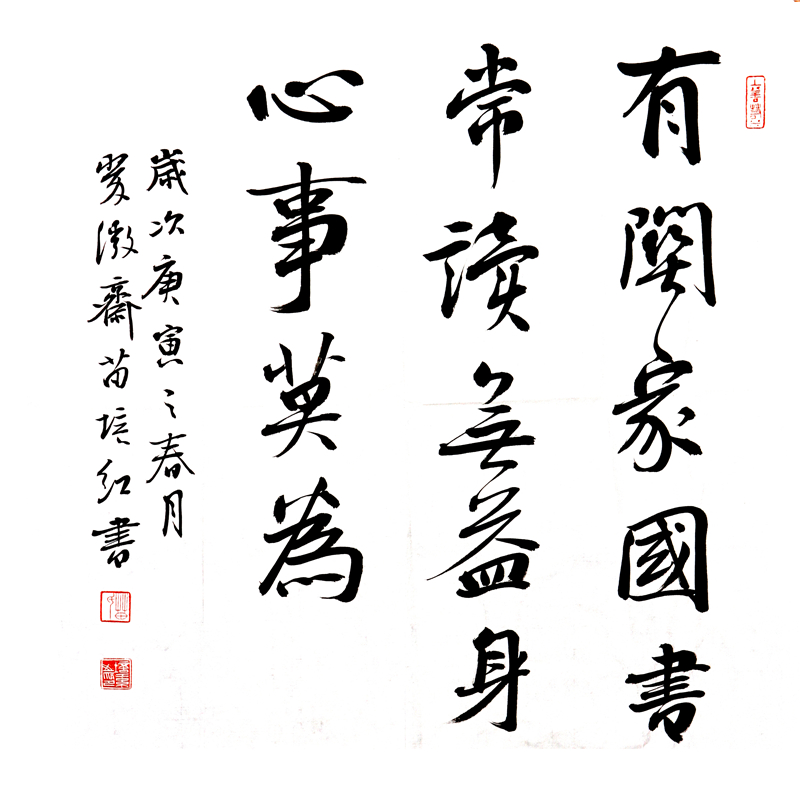 有關家國書
常讀無益身
心事莫為
歲次庚寅之春月
爱澂齋苗培红書